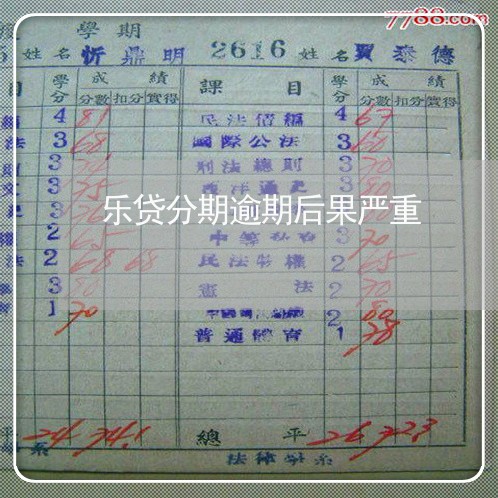 7788.com
學期
姓名 忻鼎明 2616 姓名 賈泰德
目 學分 成績 課目 學分 成績
分數 扣分 實得 分數 扣分 實得
4 81 民法債編 4 67
法 3 68 國際公法 3 60
3 刑法總則 3 70
3 75 西洋通史 3 80
乐贷分期逾期后果严重
2 65 3 70
法 2 68 68 民法物權 2 65
3 80 憲法 2 70
1 70 2 80
普通體育 1 78
平 24 74.1 總平 26 72.3
系 法律學系